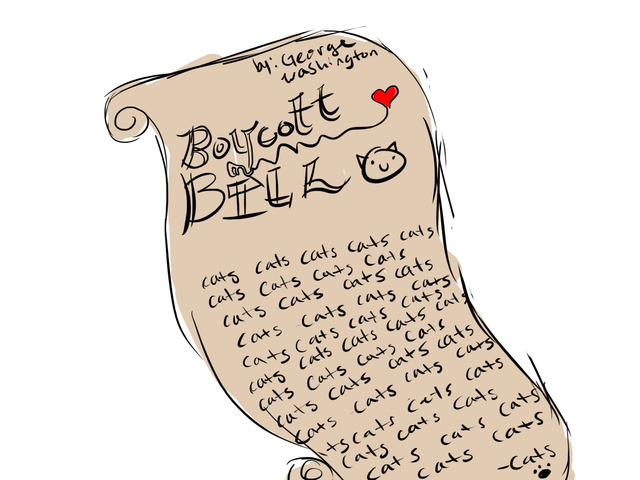 by: George
Washington
Boycott
BILL
cats cats cats cats cats
cats cats cats cats
cats cats cats cats
cats cats cats cats
cats cats cats cats cats
cats cats cats cats cats
cats cats cats cats
cats cats cats cats cats
cats cats cats cats
ts cats cats cats
cats cats cats
cats cats cats
cats cats
-Cats